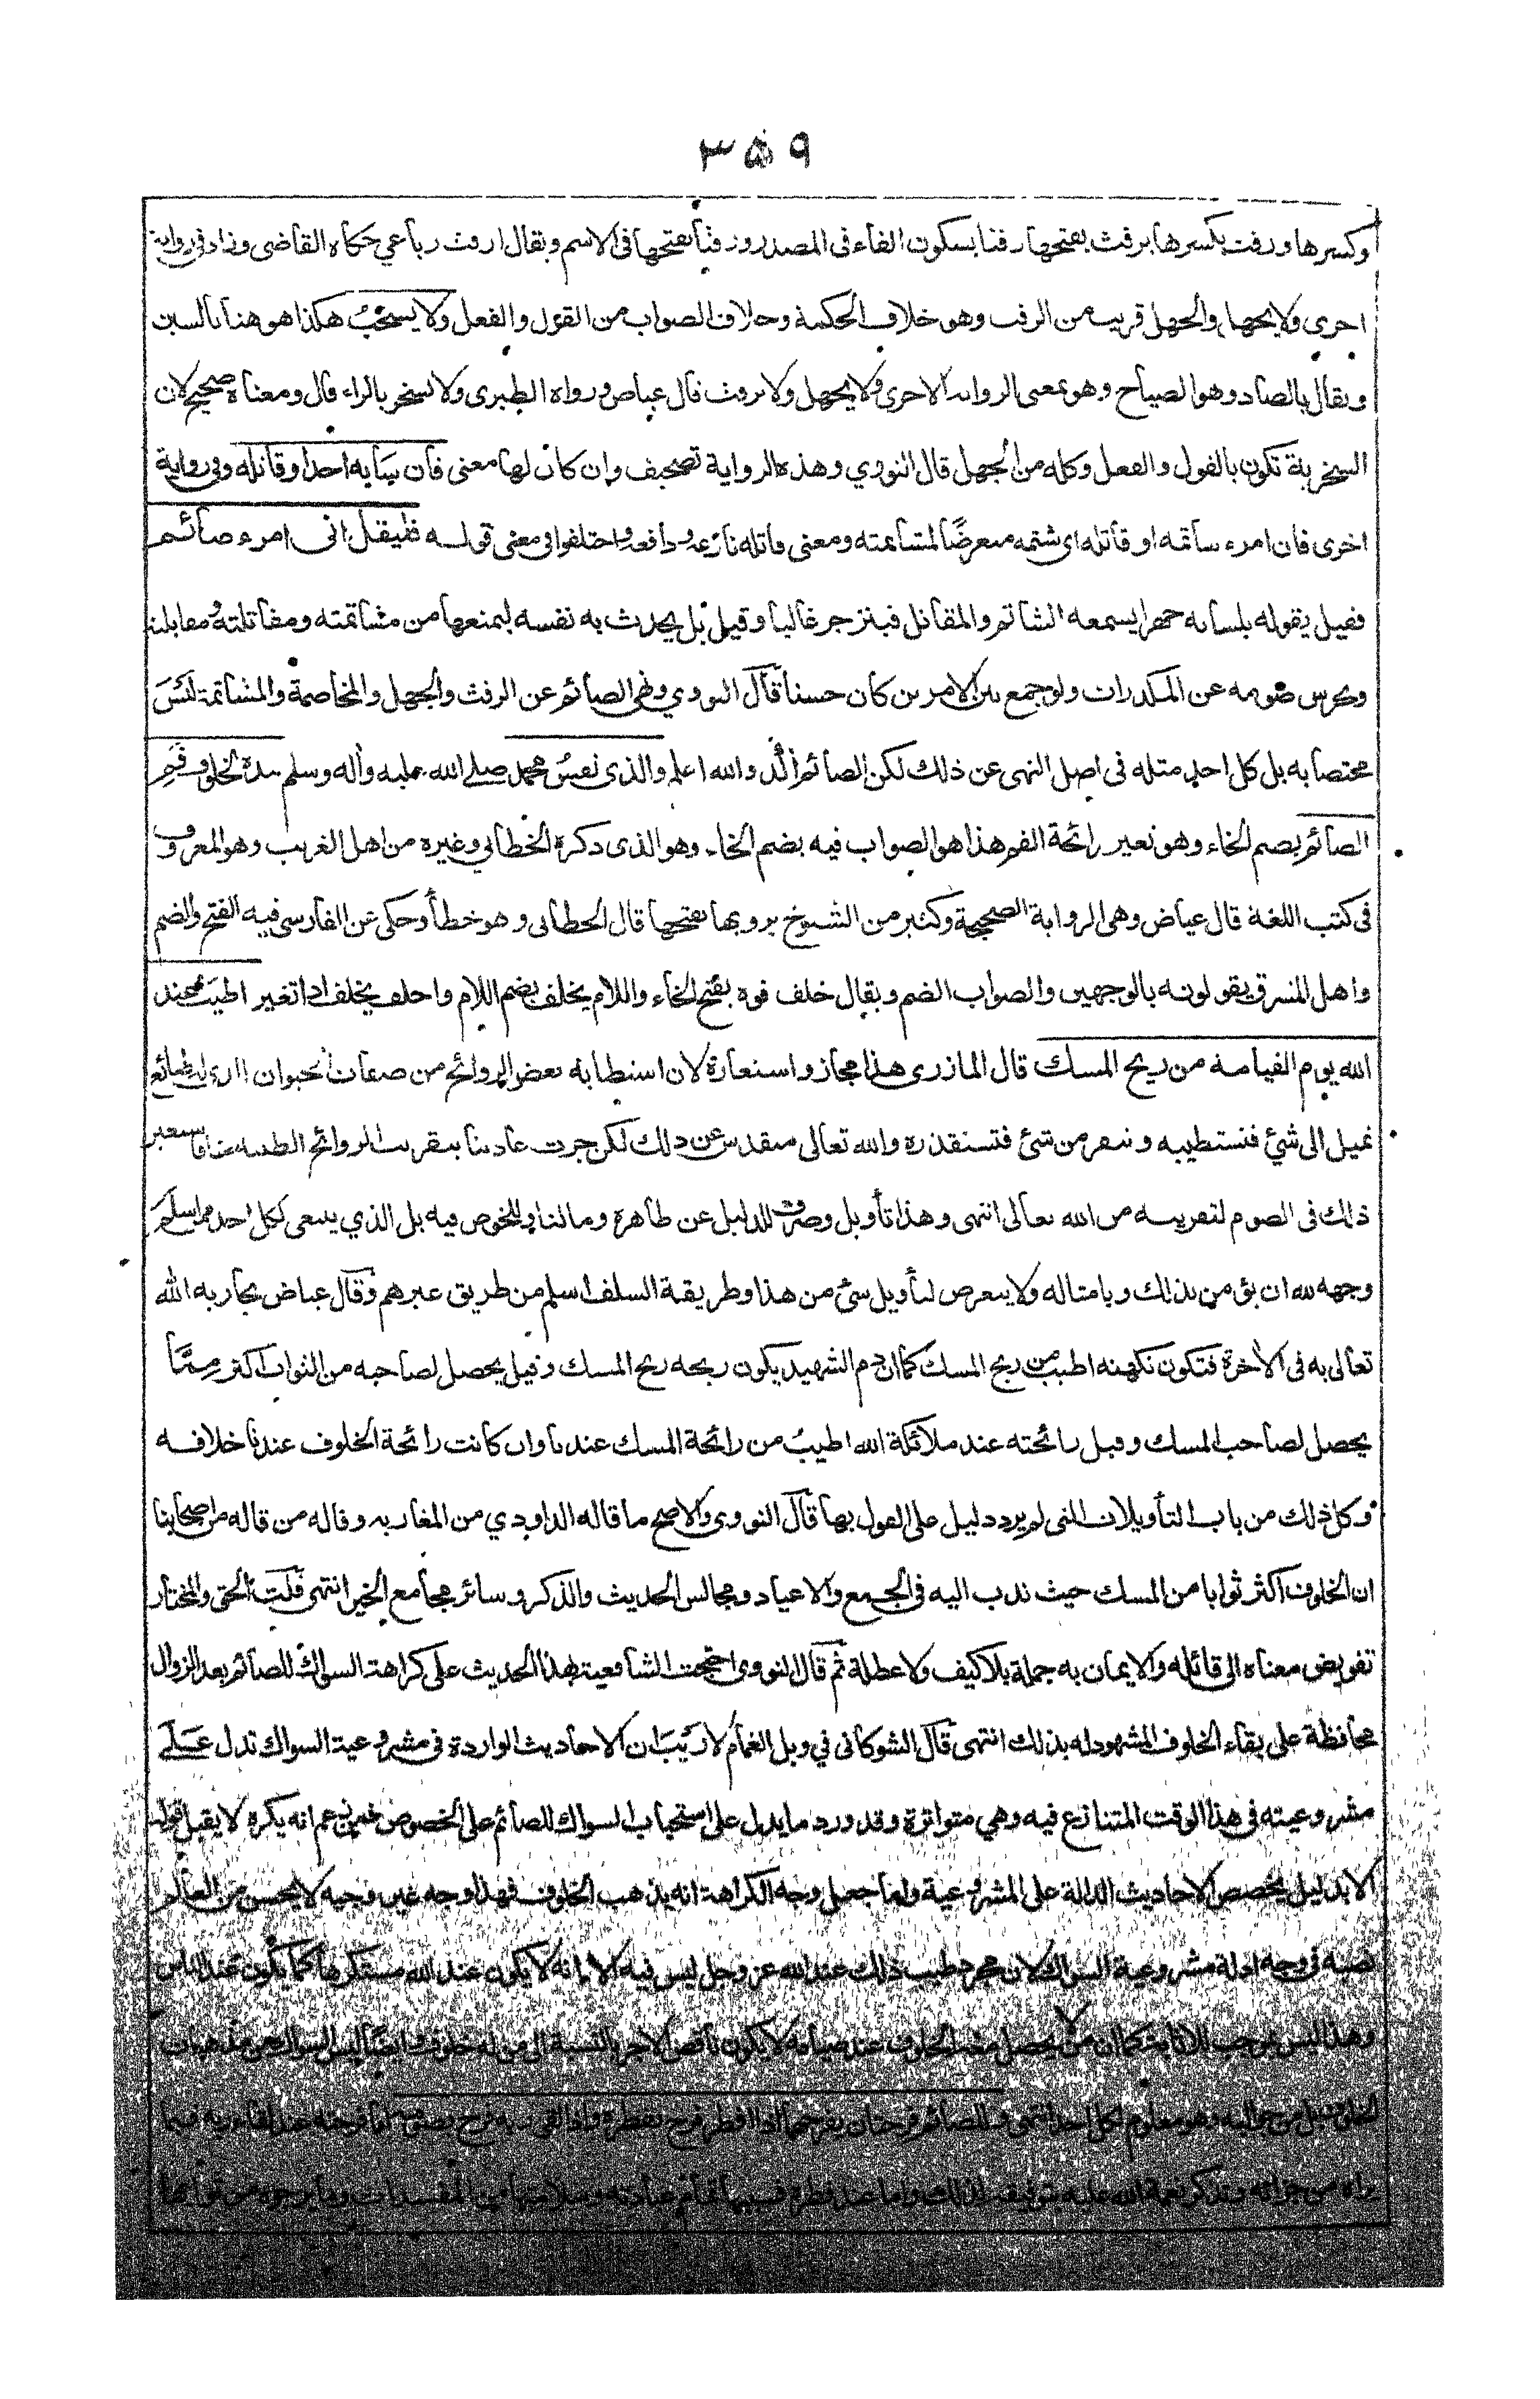 ٣٥٩
وكسرها ورفث بكسرها يرفث بفتحها رفثا بسكون الفاء فى المصدر ورفثا بفتحها فى الاسم ويقال ارفث رباعي حكاه القاضى وزاد فى رواية
اخرى ولا يجهل والجهل قريب من الرفث وهو خلاف الحكمة وخلاف الصواب من القول والفعل ولا يسخب هكذا هو هنا بالسين
ويقال بالصاد وهو الصياح وهو بمعنى الرواية الاخرى ولا يجهل ولا يرفث قال عياض ورواه الطبرى ولا يسخر بالراء قال ومعناه صحيح لان
السخرية تكون بالقول والفعل وكله من الجهل قال النووي وهذه الرواية تصحيف وان كان لها معنى فان سابه احد او قاتله وفى رواية
اخرى فان امرء شاتمه او قاتله اى شتمه متعرضًا لمشاتمته ومعنى قاتله نازعه ودافعه واختلفوا فى معنى قوله فليقل انى امرء صائم
فقيل يقوله بلسانه جهرا يسمعه الشاتم والمقاتل فينزجر غالبا وقيل بل يحدث به نفسه ليمنعها من مشاتمته ومقاتلته ومقابلته
ويحرس صومه عن المكدرات ولو جمع بين الامرين كان حسنا قال النووي ونهى الصائم عن الرفث والجهل والمخاصمة والمشاتمة ليس
مختصا به بل كل احد مثله فى اصل النهى عن ذلك لكن الصائم آكد والله اعلم والذى نفس محمد صلى الله عليه وآله وسلم بيده لخلوف فم
الصائم بضم الخاء وهو تغير رائحة الفم هذا هو الصواب فيه بضم الخاء وهو الذى ذكره الخطابي وغيره من اهل الغريب وهو المعروف
فى كتب اللغة قال عياض وهى الرواية الصحيحة وكثير من الشيوخ يرويها بفتحها قال الخطابى وهو خطأ وحكى عن الفارسى فيه الفتح والضم
واهل المشرق يقولونه بالوجهين والصواب الضم ويقال خلف فوه بفتح الخاء واللام يخلف بضم اللام واخلف يخلف اذا تغير اطيب عند
الله يوم القيامة من ريح المسك قال المازرى هذا مجاز واستعارة لان استطابة بعض الروائح من صفات الحيوان الذى له طبائع
تميل الى شئ فتستطيبه وتنفر من شئ فتستقذره والله تعالى متقدس عن ذلك لكن جرت عادتنا بتقريب الروائح الطيبة منا فاستعير
ذلك فى الصوم لتقريبه من الله تعالى انتهى وهذا تأويل وصرف للدليل عن ظاهره ومالنا وللخوض فيه بل الذي ينبغى لكل احد ممن اسلم
وجهه لله ان يؤمن بذلك وبامثاله ولا يتعرض لتأويل شئ من هذا وطريقة السلف اسلم من طريق غيرهم وقال عياض يجازيه الله
تعالى به فى الآخرة فتكون نكهته اطيب من ريح المسك كما ان دم الشهيد يكون ريحه ريح المسك وقيل يحصل لصاحبه من الثواب اكثر مِمَّا
يحصل لصاحب المسك وقيل رائحته عند ملائكة الله اطيب من رائحة المسك عندنا وان كانت رائحة الخلوف عندنا خلافه
وكل ذلك من باب التأويلات التى لم يرد دليل على القول بها قال النووى والاصح ما قاله الداودي من المغاربه وقاله من قاله من اصحابنا
ان الخلوف اكثر ثوابا من المسك حيث ندب اليه فى الجمع والاعياد ومجالس الحديث والذكر وسائر مجامع الخير انتهى قلت الحق والمختار
تفويض معناه الى قائله والايمان به جملة بلا كيف ولا عطلة ثم قال النووى احتجت الشافعية بهذا الحديث على كراهة السواك للصائم بعد الزوال
محافظة على بقاء الخلوف المشهود له بذلك انتهى قال الشوكانى في وبل الغمام لا ريب ان الاحاديث الواردة فى مشروعية السواك تدل على
مشروعيته فى هذا الوقت المتنازع فيه وهي متواترة وقد ورد ما يدل على استحباب السواك للصائم على الخصوص فمن زعم انه يكره لا يقبل قوله
الا بدليل يخصص الاحاديث الدالة على المشروعية واما جعل وجه الكراهة انه يذهب الخلوف فهذا وجه غير وجيه لا يحسن من العالم
نصبه فى وجه ادلة مشروعية السواك لان مجرد طيب ذلك عند الله عز وجل ليس فيه الا انه لا يكون عند الله مستكرها كما يكون عند الناس
وهذا ليس بموجب للاثابة كما ان من لا يحصل معه الخلوف عند صيامه لا يكون ناقص الاجر بالنسبة الى من له خلوف وايضًا ليس السواك من مذهبات
الخلوف بل من جوالبه وهو معلوم لكل احد انتهى وللصائم فرحتان يفرحهما اذا افطر فرح بفطره واذا لقى ربه فرح بصومه اما فرحته عند لقاء ربه فبما
يراه من جزائه وتذكر نعمة الله عليه بتوفيقه لذلك واما عند فطره فسببها تمام عبادته وسلامتها من المفسدات وما يرجوه من ثوابها